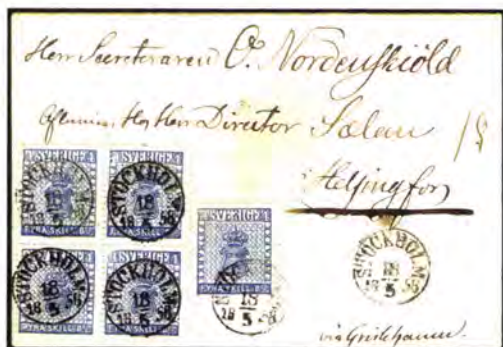 Herr Secreteraren O. Nordenskiöld
Hos Herr Director Sælan
Helsingfors
SVERIGE
FYRA SKILL. Bco
STOCKHOLM
18
5
1858
SVERIGE
FYRA SKILL. Bco
STOCKHOLM
18
5
1858
SVERIGE
FYRA SKILL. Bco
STOCKHOLM
18
5
1858
SVERIGE
FYRA SKILL. Bco
STOCKHOLM
18
5
1858
SVERIGE
FYRA SKILL. Bco
18
5
1858
STOCKHOLM
18
5
1858
via Grislehamn.